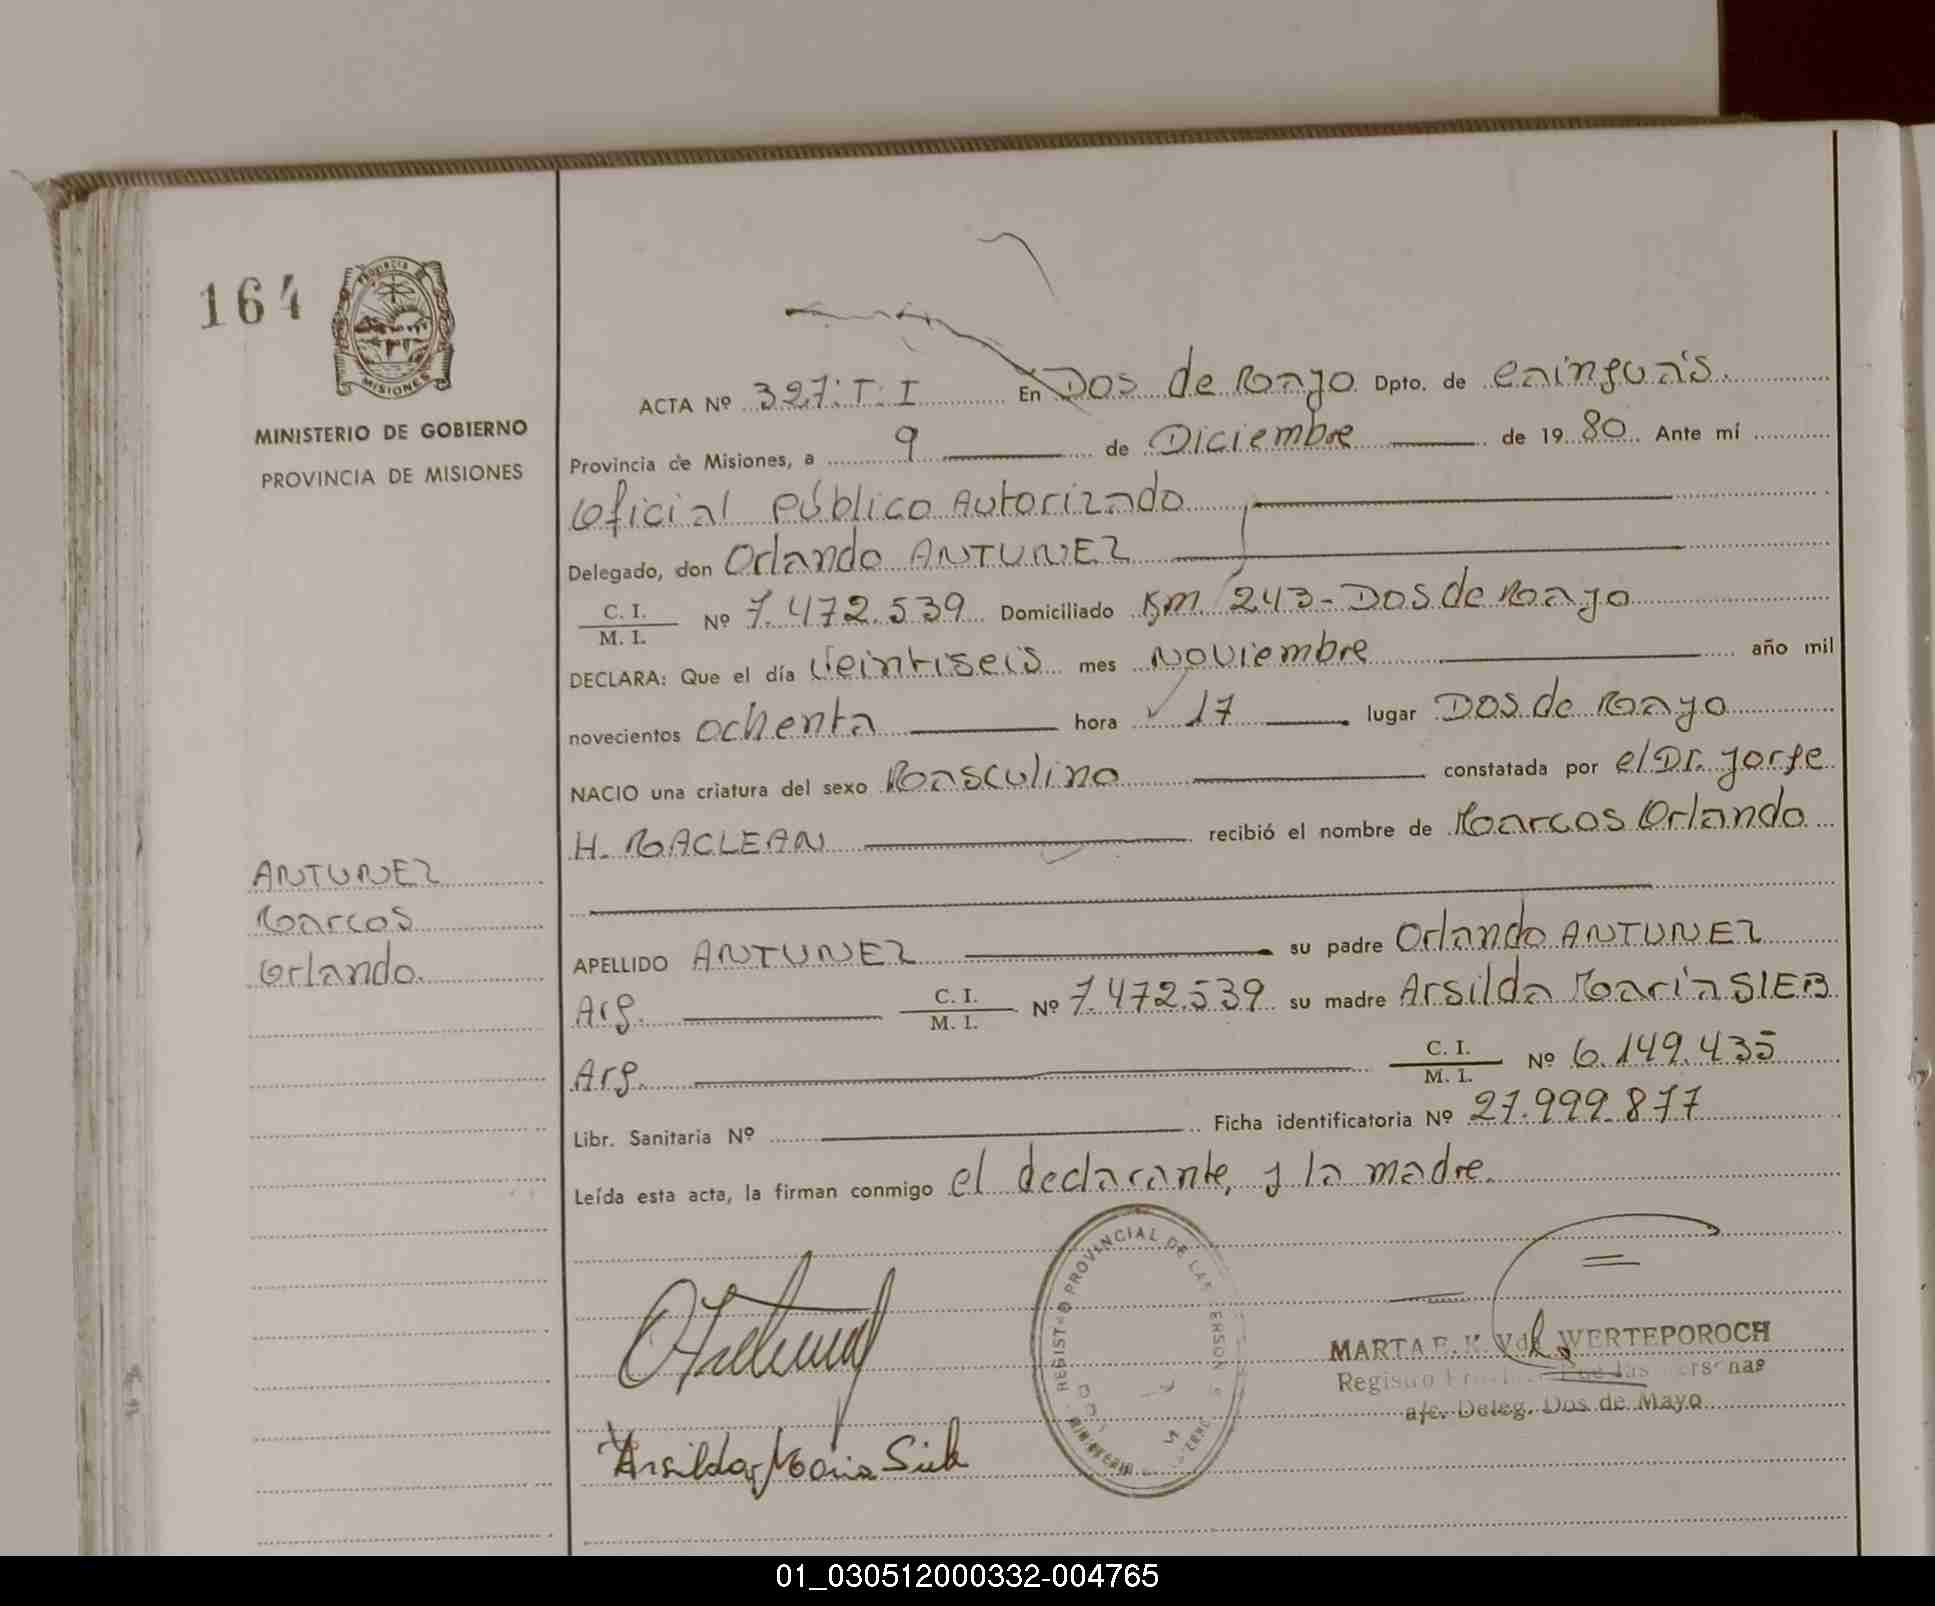 164
PROVINCIA DE
MISIONES
MINISTERIO DE GOBIERNO
PROVINCIA DE MISIONES
ACTA Nº 327:T:I En Dos de Mayo Dpto. de Cainguás.
Provincia de Misiones, a 9 de Diciembre de 19 80. Ante mí
Oficial Público Autorizado
Delegado, don Orlando ANTUNEZ
C. I.
M. I.
Nº 7.472.539 Domiciliado Km 243-Dos de Mayo
DECLARA: Que el día Veintiseis mes Noviembre año mil
novecientos ochenta hora 17 lugar Dos de Mayo
NACIO una criatura del sexo Masculino constatada por el Dr. Jorge
H. MACLEAN recibió el nombre de Marcos Orlando
ANTUNEZ
Marcos
Orlando.
APELLIDO ANTUNEZ su padre Orlando ANTUNEZ
Arg. C. I.
M. I.
Nº 7.472.539 su madre Arsilda María SIEB
Arg. C. I.
M. I.
Nº 6.149.435
Libr. Sanitaria Nº Ficha identificatoria Nº 27.999.877
Leída esta acta, la firman conmigo el declarante, y la madre.
REGISTRO PROVINCIAL DE LAS PERSONAS
MINISTERIO
MARTA E. K. Vda. WERTEPOROCH
Registro Provincial de las Personas
a/c. Deleg. Dos de Mayo
Arsilda Maria Sieb
01_030512000332-004765